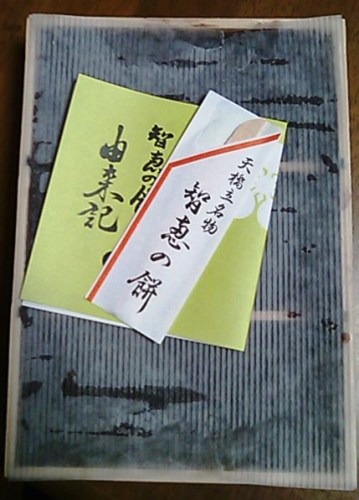 智恵の
由来記
天橋立名物
智恵の餅